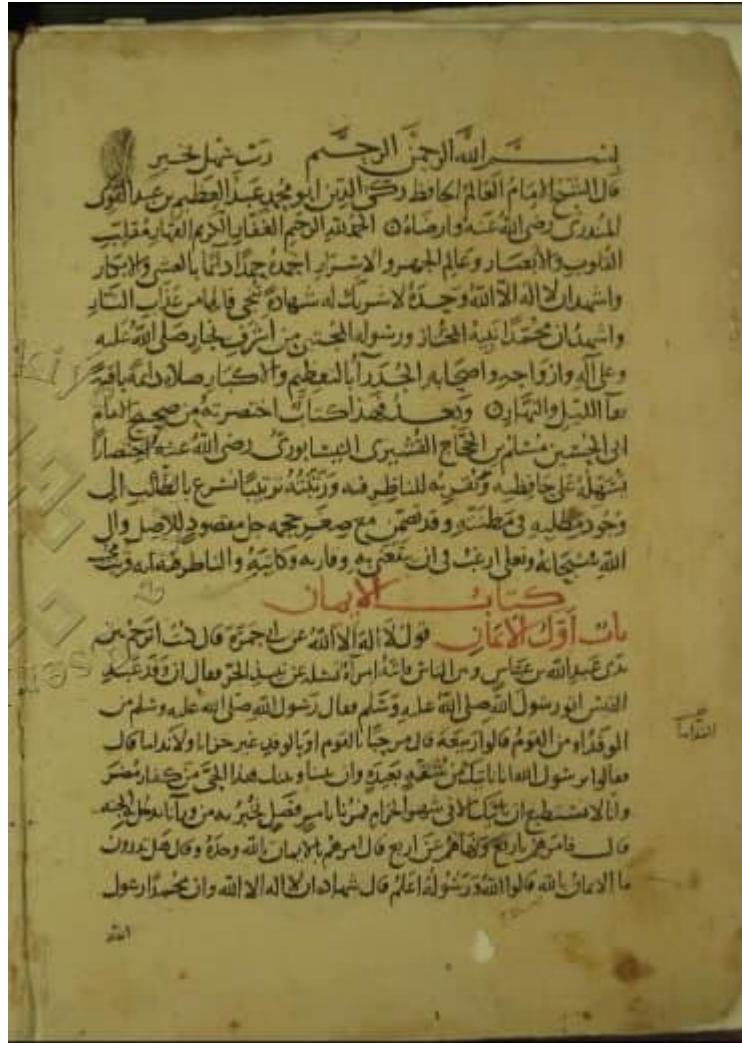 بسم الله الرحمن الرحيم رب سهل بخير
قال الشيخ الامام العالم الحافظ زكي الدين ابو محمد عبد العظيم بن عبد القوي
المنذري رضي الله عنه وارضاه الحمد لله الرحيم الغفار الكريم القهار مقلب
القلوب والابصار وعالم الجهر والاسرار احمده حمدا دائما بالعشي والابكار
واشهد ان لا اله الا الله وحده لا شريك له شهادة تنجي قائلها من عذاب النار
واشهد ان محمدا نبيه المختار ورسوله المجتبى من اشرف نجار صلى الله عليه
وعلى اله وازواجه واصحابه الجدراء بالتعظيم والاكبار صلاة دائمة باقية
بقاء الليل والنهار وبعد فهذا كتاب اختصرته من صحيح الامام
ابي الحسين مسلم بن الحجاج القشيري النيسابوري رضي الله عنه اختصارا
يسهله على حافظيه ويقربه للناظر فيه ورتبته ترتيبا يسرع بالطالب الى
وجود مطلبه في مظنته وقد تضمن مع صغر حجمه جل مقصود الاصل والى
الله سبحانه وتعالى ارغب في ان ينفعني به وقاريه وكاتبه والناظر فيه انه قريب مجيب
كتاب الايمان
باب اول الايمان قول لا اله الا الله عن ابي جمرة قال كنت اترجم بين
يدي عبد الله بن عباس وبين الناس فاتته امراة تسله عن نبيذ الجر فقال ان وفد عبد
القيس اتوا رسول الله صلى الله عليه وسلم فقال رسول الله صلى الله عليه وسلم من
الوفد او من القوم قالوا ربيعة قال مرحبا بالقوم او بالوفد غير خزايا ولا نداما قال
فقالوا يرسول الله انا ناتيك من شقة بعيدة وان بيننا وبينك هذا الحي من كفار مضر
وانا لا نستطيع ان ناتيك الا في شهر الحرام فمرنا بامر فصل نخبر به من وراءنا ندخل به الجنة
قال فامرهم باربع ونهاهم عن اربع قال امرهم بالايمان بالله وحده وقال هل تدرون
ما الايمان بالله قالوا الله ورسوله اعلم قال شهادة ان لا اله الا الله وان محمدا رسول
الله
النداما